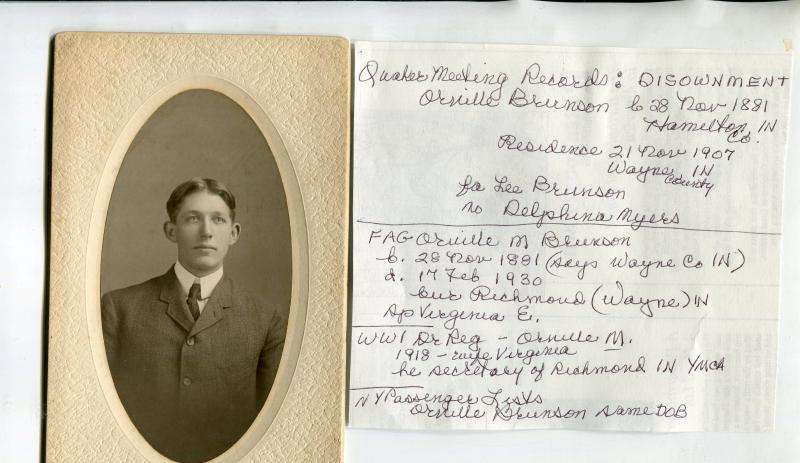 Quaker Meeting Records: DISOWNMENT
Orville Brunson b 28 Nov 1881
Hamilton Co. IN
Residence 21 Nov 1907
Wayne County IN
fa Lee Brunson
mo Delphina Myers
FAG Orville M Brunson
b. 28 Nov 1881 (says Wayne Co IN)
d. 17 Feb 1930
bur Richmond (Wayne) IN
Sp Virginia E.
WWI Dr Reg - Orville M.
1918 - wife Virginia
he secretary of Richmond IN YMCA
NY Passenger Lists
Orville Brunson same DOB